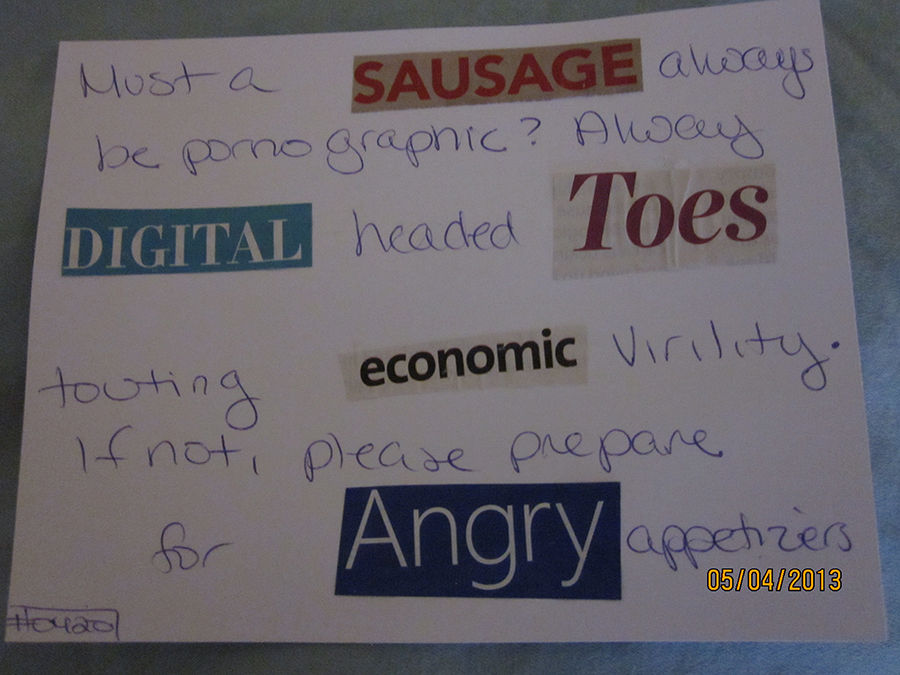 Must a SAUSAGE always
be pornographic? Alway
DIGITAL headed Toes
touting economic Virility.
If not, please prepare
for Angry appetizers
05/04/2013